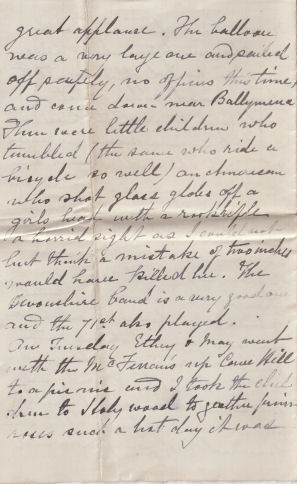 great applause. The balloon
was a very large one and sailed
off safely, no offices this time,
and came down near Ballymena
Then were little children who
tumbled (the same who ride a
bicycle so well) an American
who shot glass globes off a
girls head with a rifle
a horrid sight as I could not
but think a mistake of two inches
would have killed her. The
Devonshire band is a very good one
and the 71st also played.
On Tuesday Ethey & May went
with the McFerrans up Cave Hill
to a pic nic and I took the chil
dren to Holywood to gather prim
roses such a hot day it was